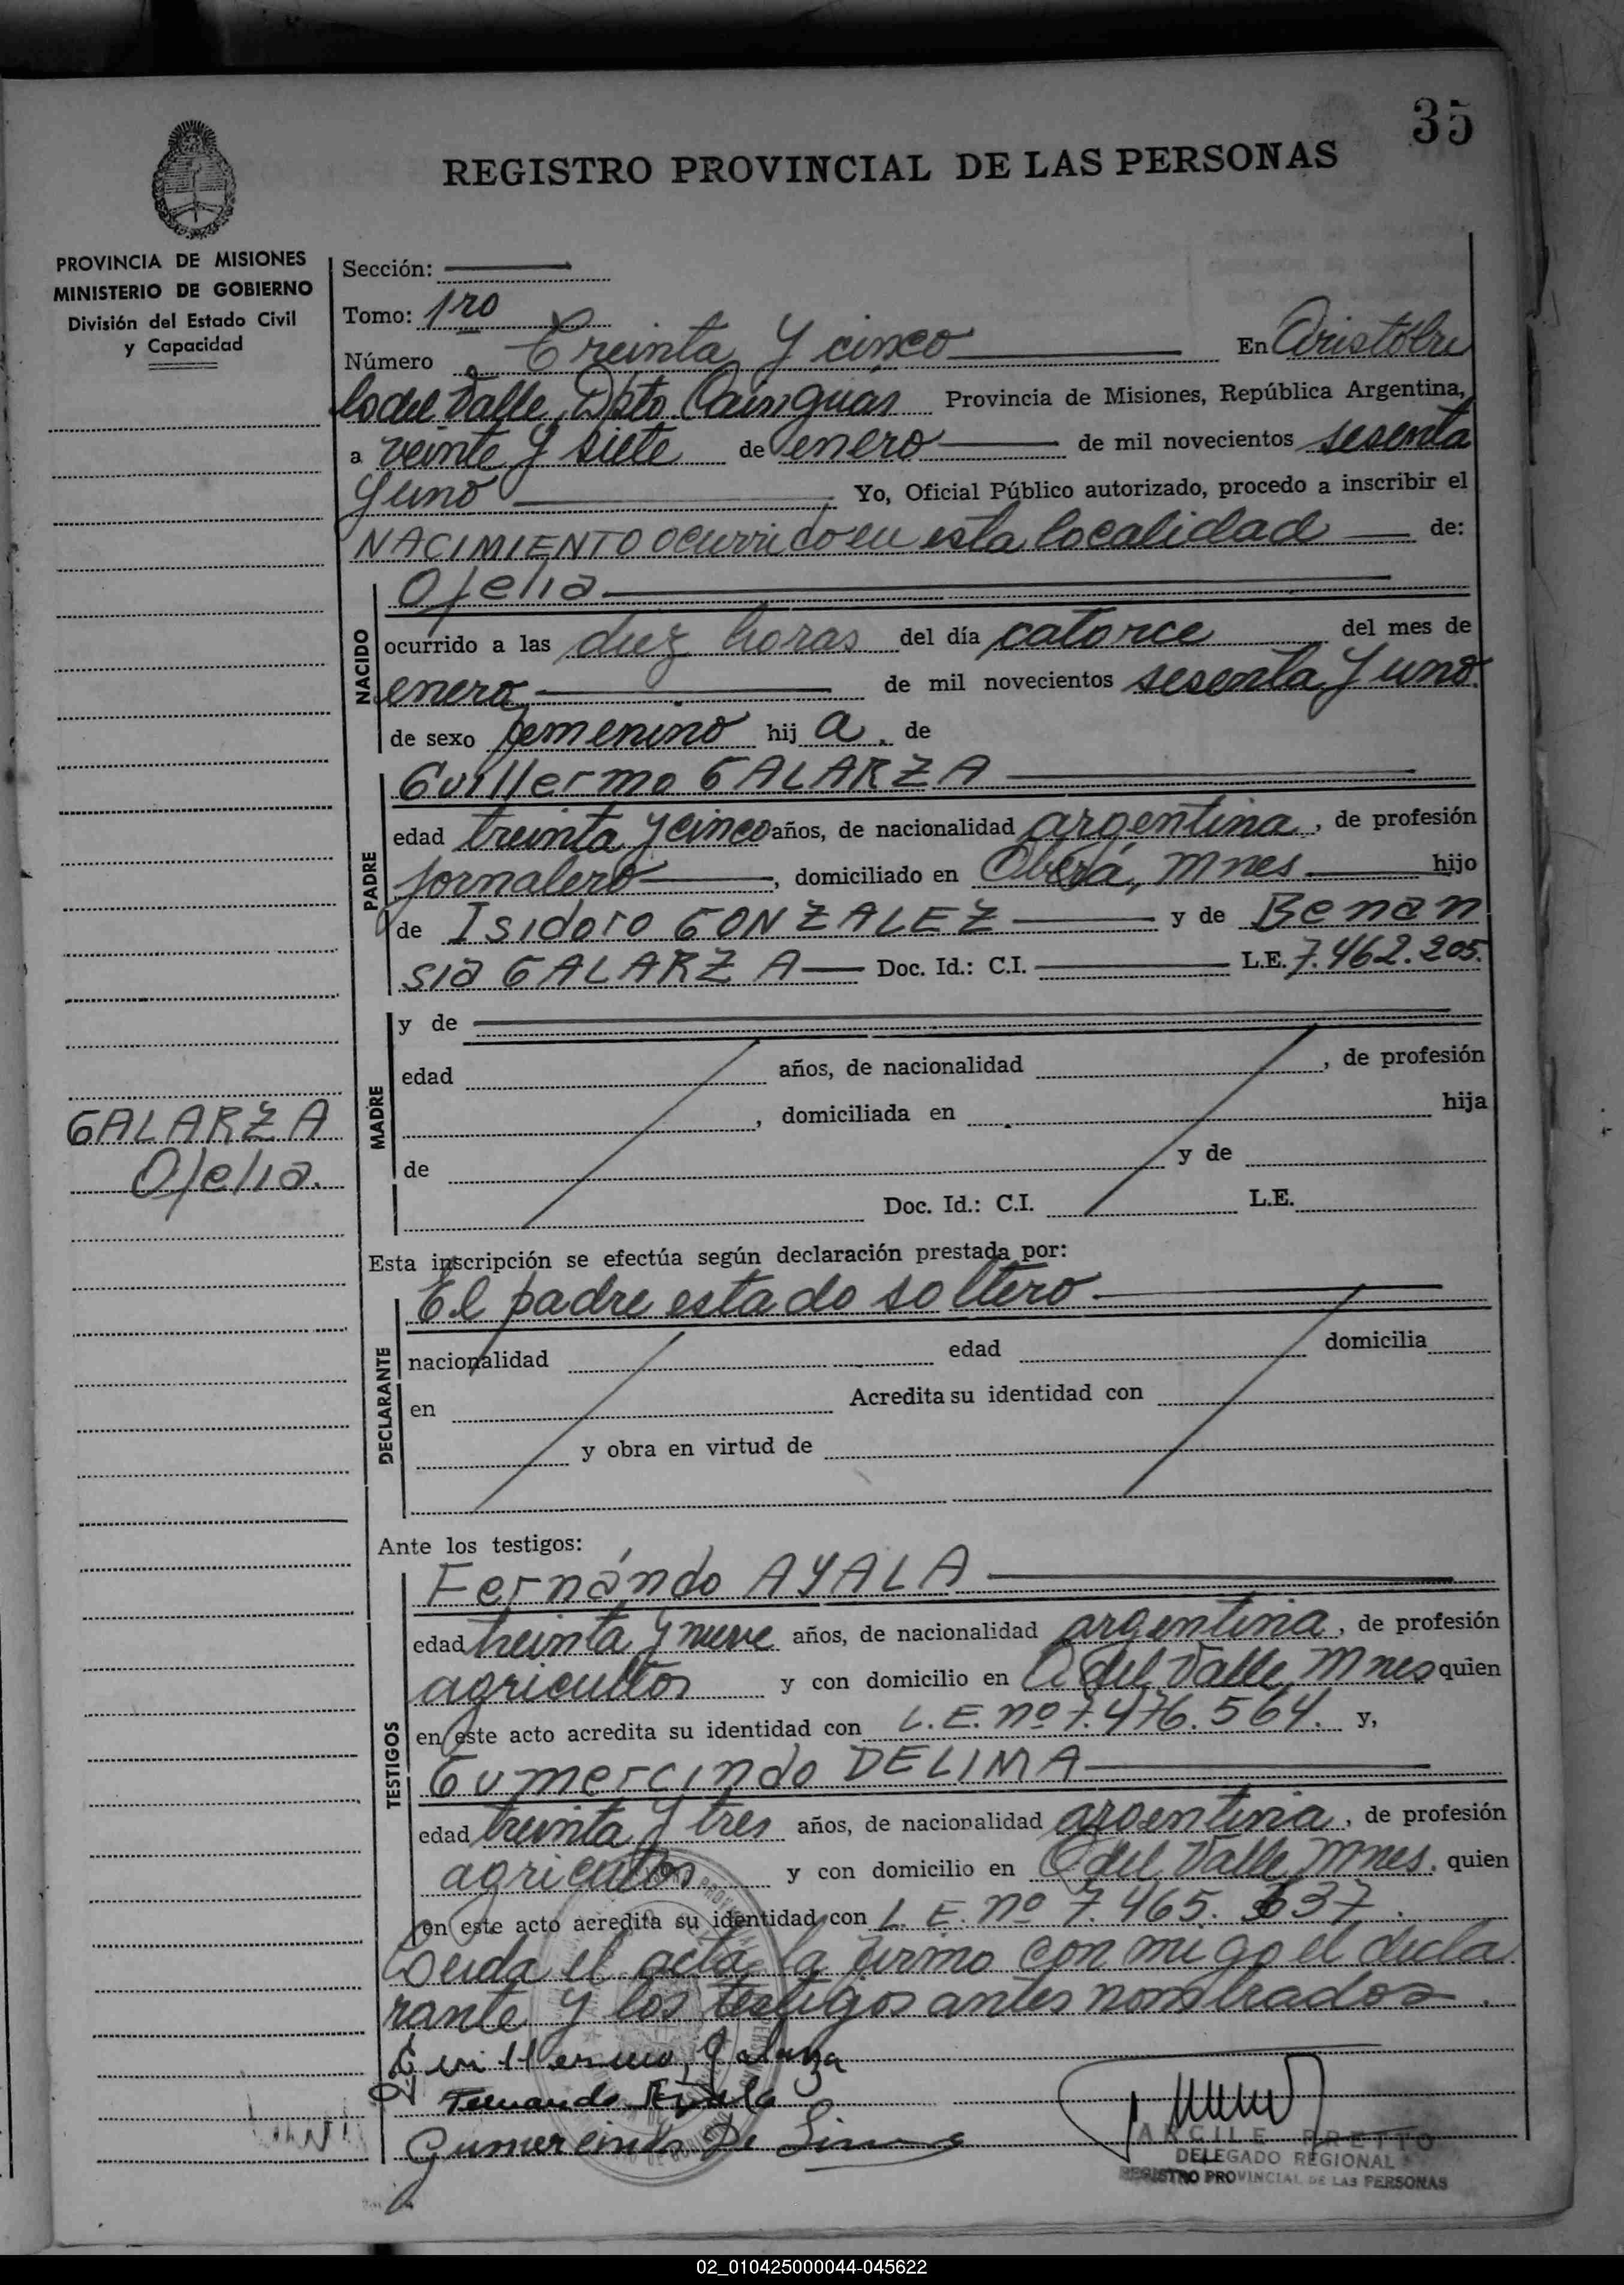 35
REGISTRO PROVINCIAL DE LAS PERSONAS
PROVINCIA DE MISIONES
MINISTERIO DE GOBIERNO
División del Estado Civil
y Capacidad
Sección:
Tomo: 1ro
Número Treinta y cinco En Aristóbu
lo del Valle, Dpto. Cainguás Provincia de Misiones, República Argentina,
a veinte y siete de enero de mil novecientos sesenta
y uno Yo, Oficial Público autorizado, procedo a inscribir el
NACIMIENTO ocurrido en esta localidad de:
NACIDO
Ofelia
ocurrido a las diez horas del día catorce del mes de
enero de mil novecientos sesenta y uno.
de sexo femenino hij a. de
PADRE
Guillermo GALARZA
edad treinta y cinco años, de nacionalidad argentina, de profesión
jornalero, domiciliado en Oberá, Mnes hijo
de Isidoro GONZALEZ y de Benan
sia GALARZA Doc. Id.: C.I. L.E. 7.462.205.
MADRE
y de
edad años, de nacionalidad , de profesión
, domiciliada en hija
de y de
Doc. Id.: C.I. L.E.
GALARZA
Ofelia.
Esta inscripción se efectúa según declaración prestada por:
DECLARANTE
El padre estado soltero
nacionalidad edad domicilia
en Acredita su identidad con
y obra en virtud de
Ante los testigos:
TESTIGOS
Fernándo AYALA
edad treinta y nueve años, de nacionalidad argentina, de profesión
agricultor y con domicilio en A del Valle, Mnes quien
en este acto acredita su identidad con L.E. nº 7.476.564. y,
Gumercindo DELIMA
edad treinta y tres años, de nacionalidad argentina, de profesión
agricultor y con domicilio en A del Valle Mnes. quien
en este acto acredita su identidad con L.E. nº 7.465.637.
Leida el acta, la firmo con migo el decla
rante y los testigos antes nombrados.
Guillermo, Galarza
Fernando Ayala
Gumercindo De Lima
ARGILE PRETTO
DELEGADO REGIONAL
REGISTRO PROVINCIAL DE LAS PERSONAS
02_010425000044-045622